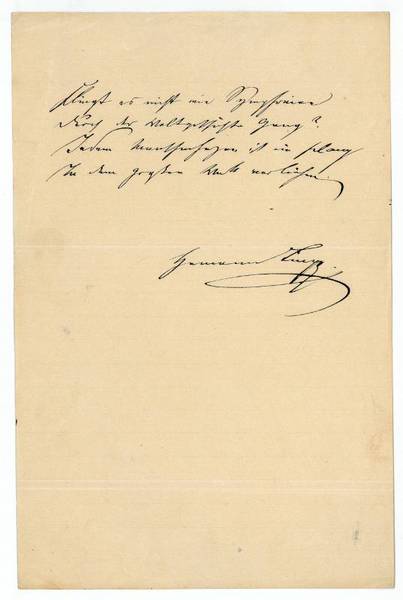 Klingt es nicht wie Symphonien
Durch der Weltgeschichte Gang?
Jedem Menschenherzen ist ein Klang
In dem großen verliehen.
Hermann Lingg.